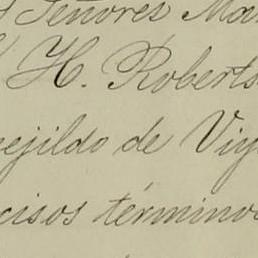 Señores Ma
H. Roberts
ejildo de Viy
cisos término